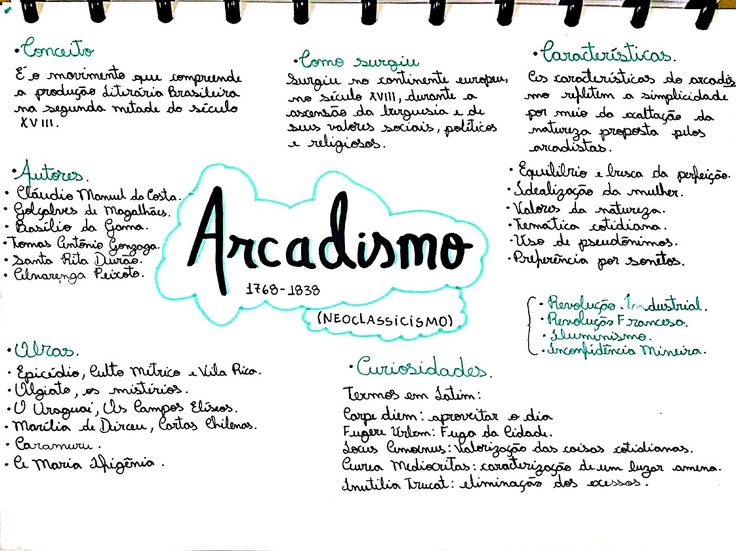 •Conceito
É o movimento que compreende
a produção Literária Brasileira
na segunda metade do século
XVIII.
•Como surgiu
Surgiu no continente europeu,
no século XVIII, durante a
ascensão da burguesia e de
seus valores sociais, políticos
e religiosos.
•Características.
As características do arcadis
mo refletem a simplicidade
por meio da exaltação da
natureza proposta pelos
arcadistas.
•Equilíbrio e busca da perfeição.
•Idealização da mulher.
•Valores da natureza.
•Temática cotidiana.
•Uso de pseudônimos.
•Preferência por sonetos.
•Autores.
•Cláudio Manuel da Costa.
•Golçalves de Magalhães.
•Basílio da Gama.
Tomas Antônio Gonzaga.
•Santa Rita Durão.
•Alvarenga Peixoto.
Arcadismo
1768-1838
(NEOCLASSICISMO)
•Revolução Industrial.
•Revolução Francesa.
•Iluminismo.
•Inconfidência Mineira.
•Obras.
•Epicédio, Culto Métrico e Vila Rica.
•Vigiato, os mistérios.
•O Uraguai, Os Campos Elíseos.
•Marília de Dirceu, Cartas Chilenas.
•Caramuru.
•A Maria Ifigênia.
•Curiosidades.
Termos em Latim:
Carpe diem: aproveitar o dia
Fugere Urbem: Fuga da Cidade.
Locus Amoenus: Valorização das coisas cotidianas.
Aurea Mediocritas: caracterização de um lugar ameno.
Inutilia Trucat: eliminação dos excessos.